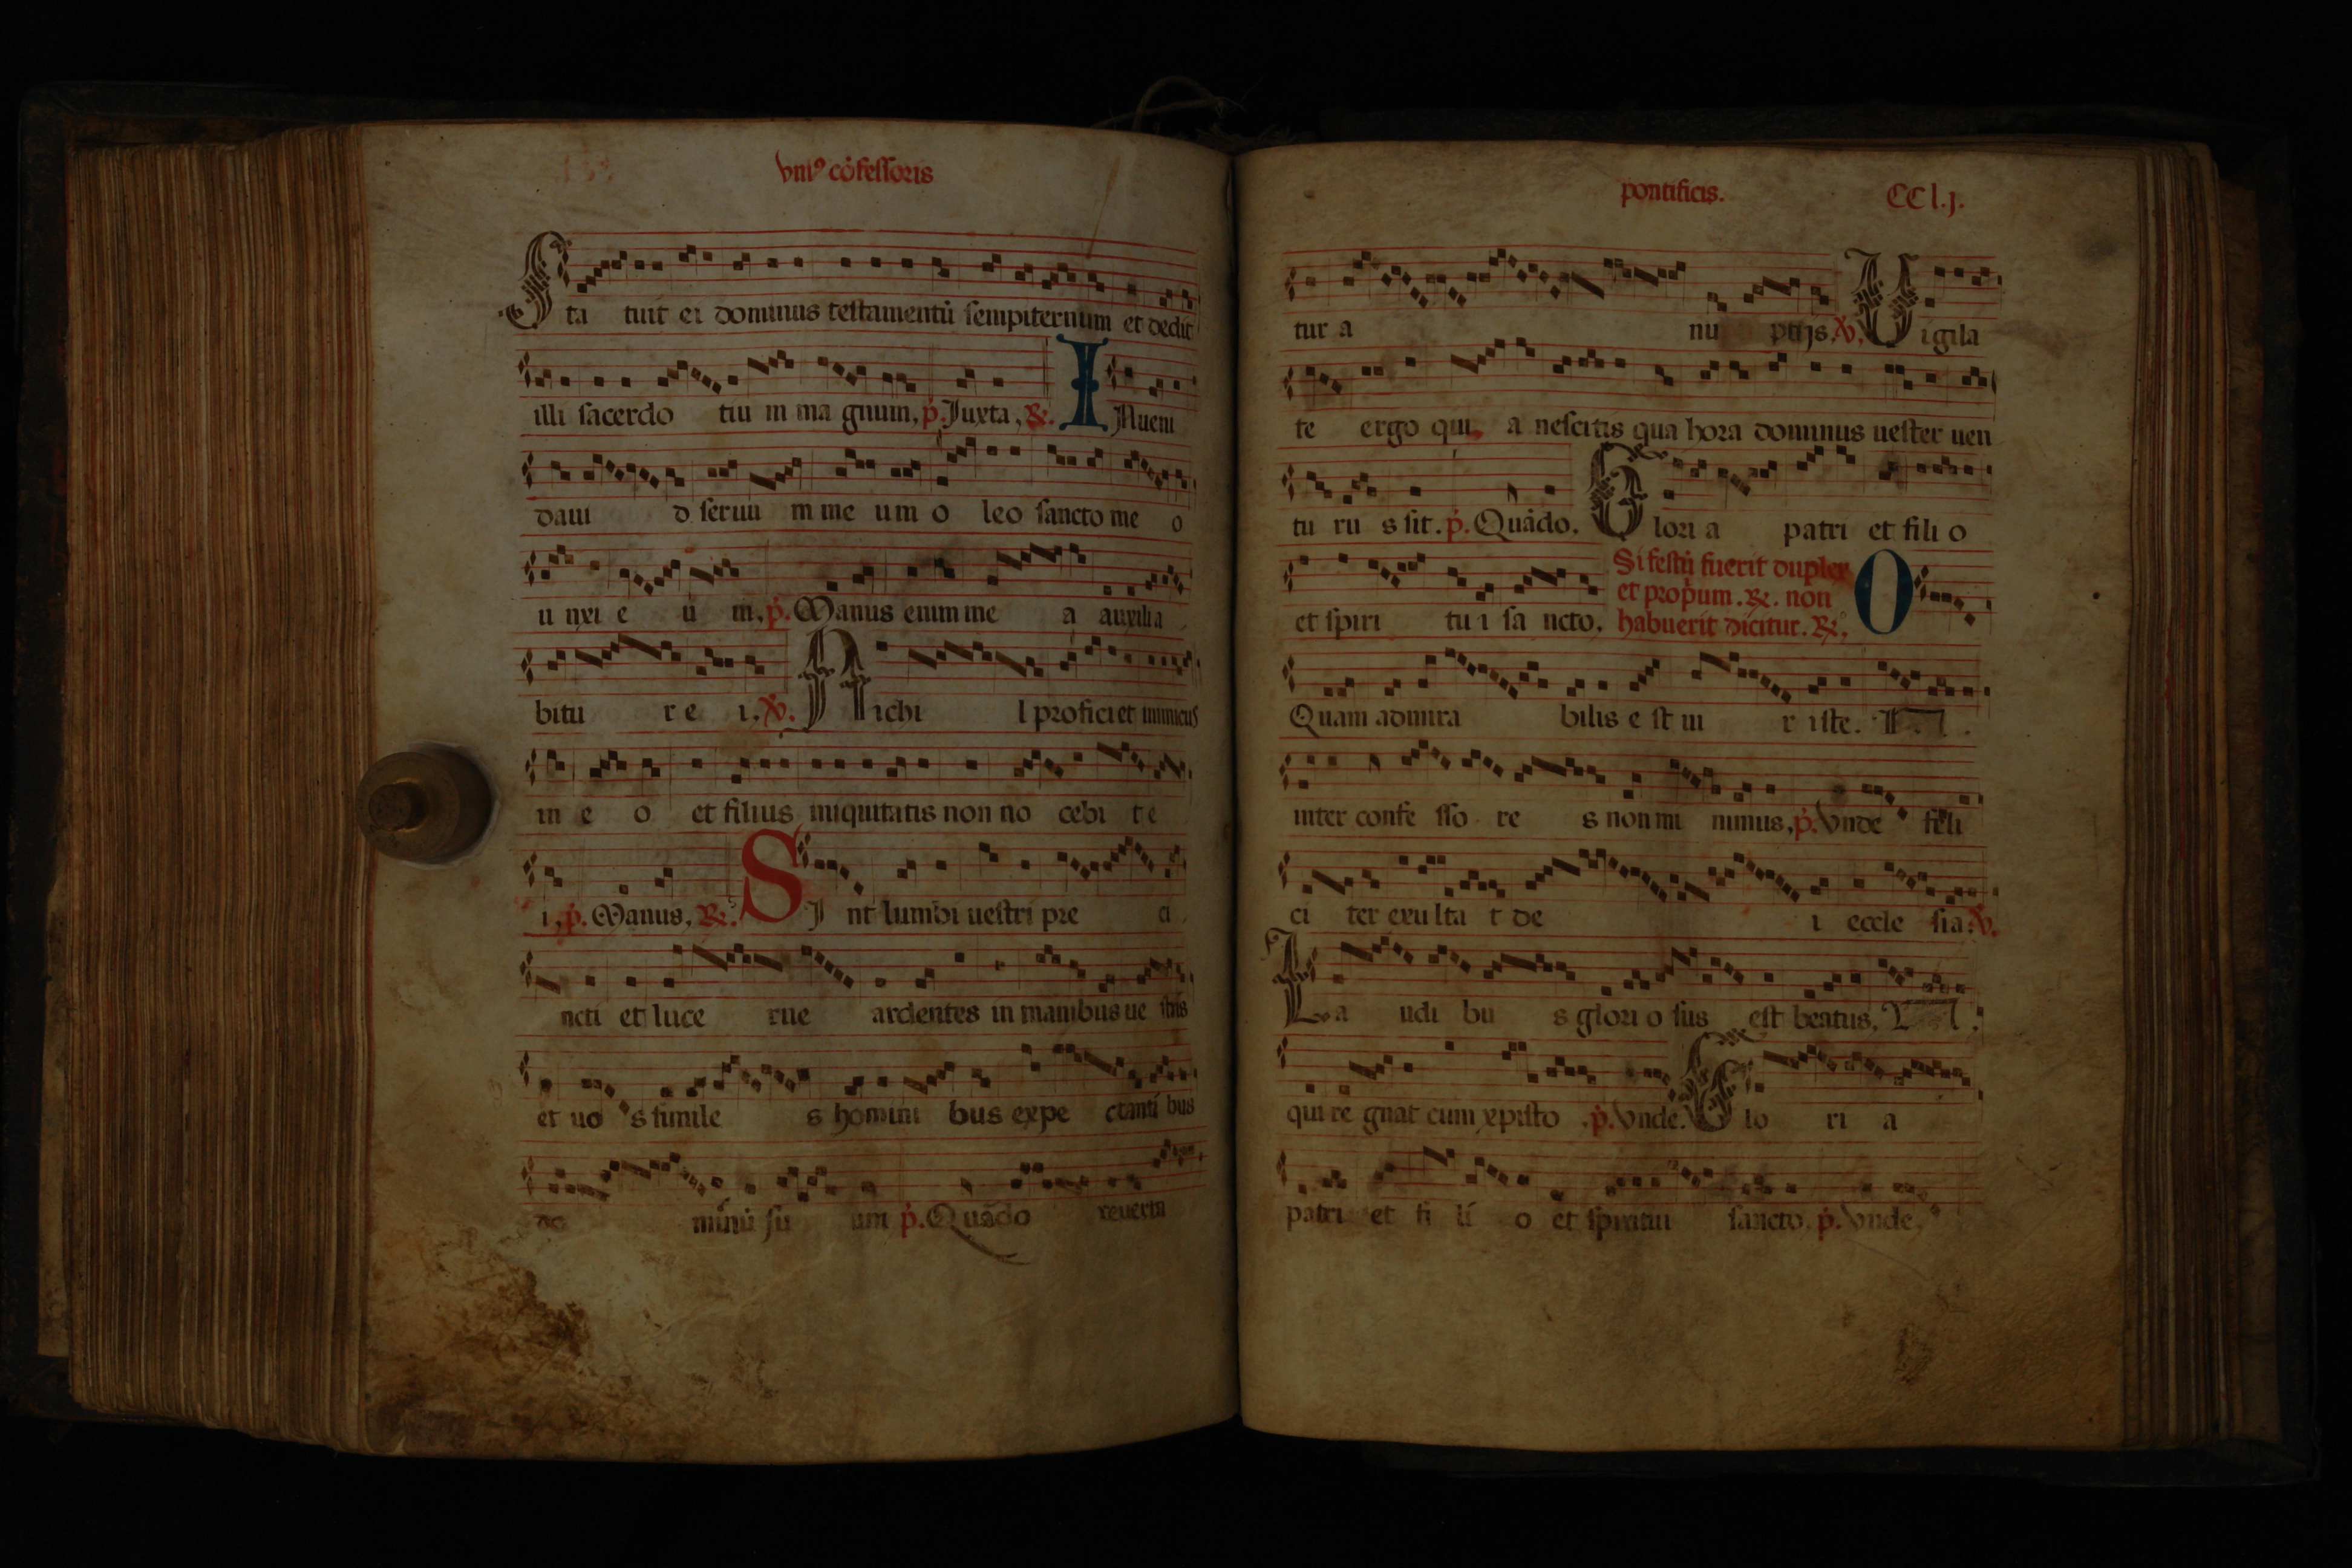 vniꝰ cōfessoris
Sta tuit ei dominus testamentū sempiternum et dedit
illi sacerdo tiu m ma gnum, p̄. Juxta, ℟. I Nueni
daui d seruu m me um o leo sancto me o
u nxi e u m, p̄. Manus enim me a auxilia
bitu r e i, ℣. Nichi l proficiet inimicus
in e o et filius iniquitatis non no cebi t e
i, p̄. Manus, ℟. S I nt lumbi uestri pre ci
ncti et luce rne ardentes in manibus ue stris
et uo s simile s homini bus expe ctanti bus
do minū su um p̄. Quādo reuerta
pontificis. CC l.j.
tur a nu ptijs. ℣. Uigila
te ergo qui a nescitis qua hora dominus uester uen
tu ru s sit. p̄. Quādo, Glori a patri et fili o
et spiri tu i sa ncto, Si festū fuerit duplex
et prop̄um. ℟. non
habuerit dicitur. ℟, O
Quam admira bilis e st ui r iste.
inter confe sso re s non mi nimus, p̄. Vnde feli
ci ter exu lta t de i eccle sia. ℣.
La udi bu s glori o sus est beatus,
qui re gnat cum xpisto , p̄. Vnde. Glo ri a
patri et fi li o et spiritui sancto. p̄. Vnde